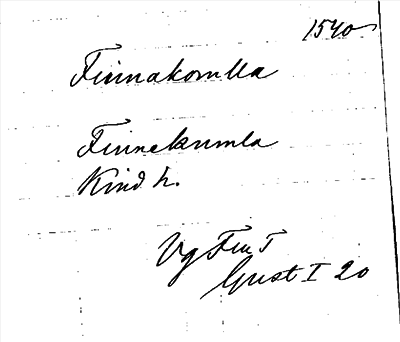 1540
Finnakomlla
Finnekumla
Kind h.
Vg Fm T
Gust I 20